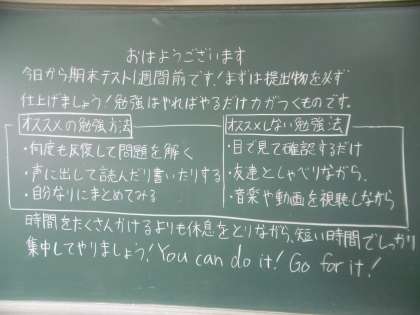 おはようございます
今日から期末テスト1週間前です!まずは提出物を必ず
仕上げましょう!勉強はやればやるだけ力がつくものです。
オススメの勉強方法
・何度も反復して問題を解く
・声に出して読んだり書いたりする
・自分なりにまとめてみる
オススメしない勉強法
・目で見て確認するだけ
・友達としゃべりながら、
・音楽や動画を視聴しながら
時間をたくさんかけるよりも休息をとりながら、短い時間でしっかり
集中してやりましょう! You can do it! Go for it!